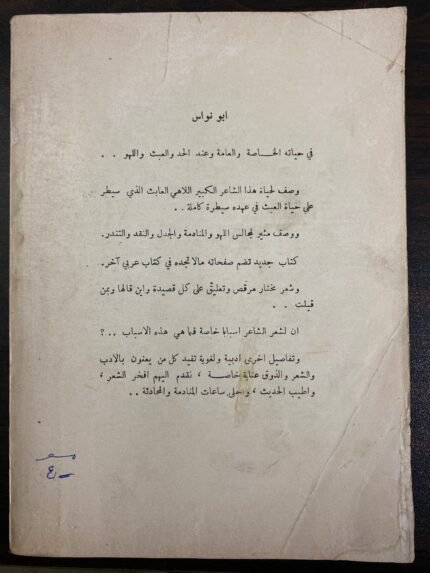 ابو نواس
في حياته الخاصة والعامة وعند الجد والعبث واللهو . .
وصف لحياة هذا الشاعر الكبير اللاهي العابث الذي سيطر
على حياة العبث في عهده سيطرة كاملة . .
ووصف مثير لمجالس اللهو والمنادمة والجدل والنقد والتندر.
كتاب جديد تضم صفحاته مالا تجده في كتاب عربي آخر.
وشعر مختار مرقص وتعليق على كل قصيدة واين قالها وبمن
قيلت . .
ان لشعر الشاعر اسبابا خاصة فما هي هذه الاسباب . . ؟
وتفاصيل اخرى ادبية ولغوية تفيد كل من يعنون بالادب
والشعر والذوق عناية خاصة ، نقدم اليهم افخر الشعر ،
واطيب الحديث ، واحلى ساعات المنادمة والمحادثة . .